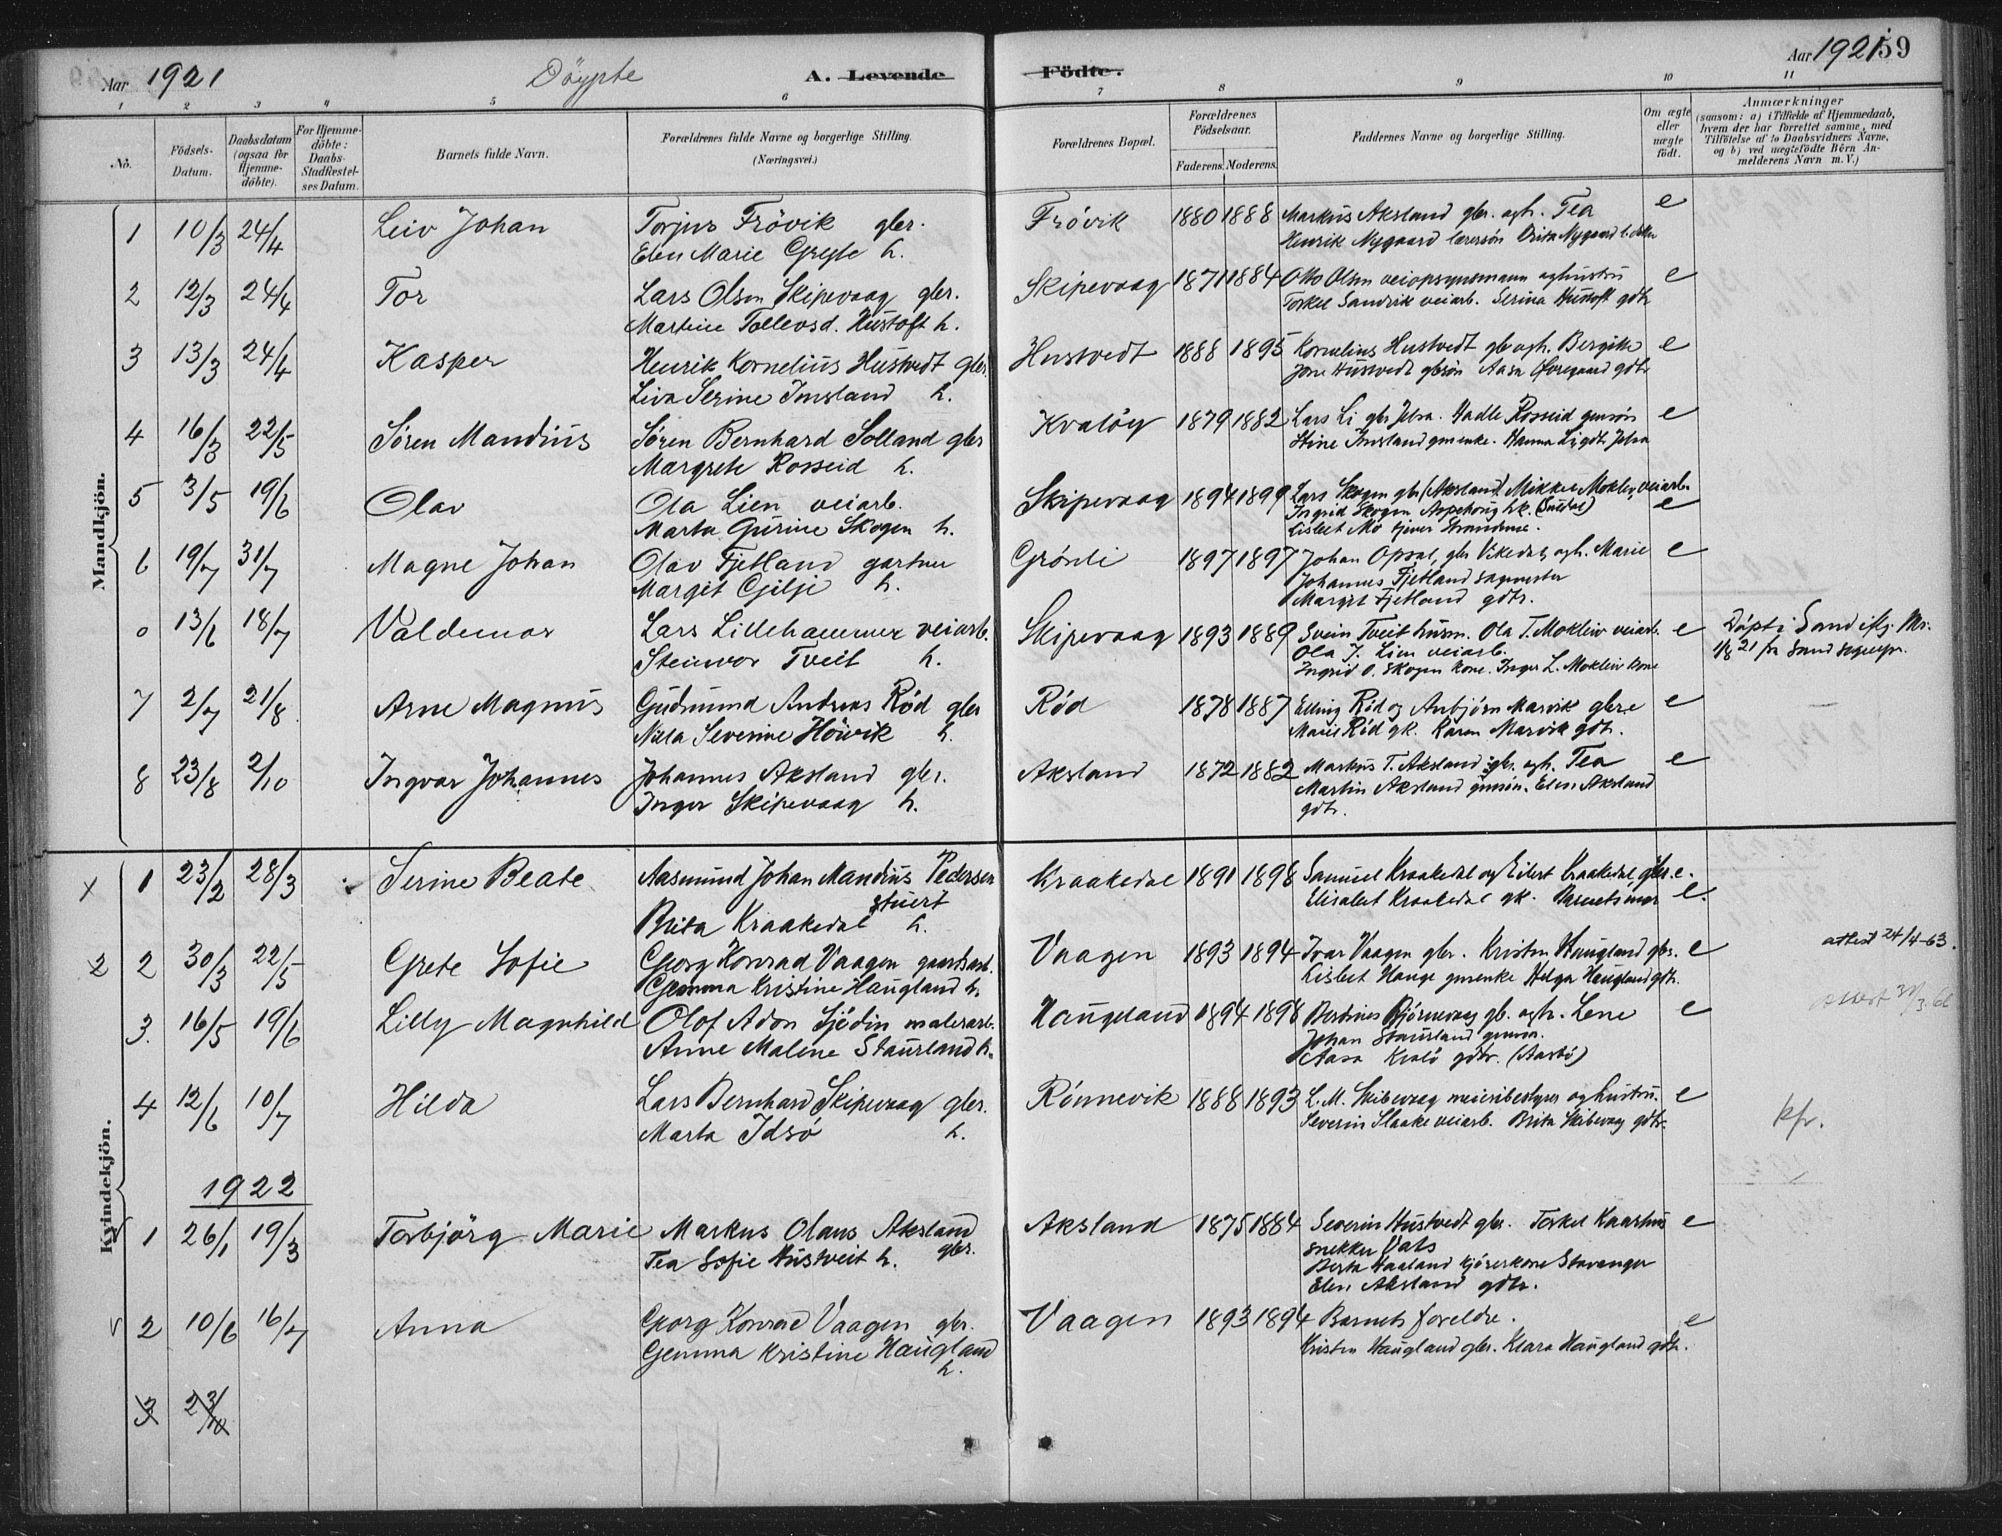 Aar 1921 Döypte A. Levende Födte. Aar 1921 59
1 2 3 4 5 6 7 8 9 10 11
No. Födsels-Datum. Daabsdatum (ogsaa for Hjemme-döbte). For Hjemme-döbte: Daabs-Stadfæstel-ses Datum. Barnets fulde Navn. Forældrenes fulde Navne og borgerlige Stilling. (Næringsvei.) Forældrenes Bopæl. Forældrenes Födselsaar. Faderens. Moderens. Faddernes Navne og borgerlige Stilling. Om ægte eller uægte födt. Anmærkninger (saasom: a) i Tilfælde af Hjemmedaab, hvem der har forrettet samme, med Tilföielse af to Daabsvidners Navne, og b) ved uægtefödte Börn An-melderens Navn m. V.)
Mandkjön.
1 10/3 24/4 Leiv Johan Torjus Frövik gbr. Frövik 1880 1888 Markus Aksland gbr. og h. Tea e
Elen Marie Grejte h. Henrik Nygaard lærersön Brita Nygaard
2 12/3 24/4 Tor Lars Olsen Skipevaag gbr. Skipevaag 1871 1884 Otto Olsen veiopsynsmann og hustru e
Martine Tollevsd. Hustoft h. Torkel Sandvik veiarb. Serina Hustoft gdtr
3 13/3 24/4 Kasper Henrik Kornelius Hustvedt gbr. Hustvedt 1888 1895 Kornelius Hustvedt gb og h. Bergitte e
Liva Serine Imsland h. Jone Hustvedt gbrsön Aasa Övregaard gdtr
4 16/3 22/5 Sören Mandius Sören Bernhard Solland gbr Kvalöy 1879 1882 Lars Li gbr Jelsa. Hadle Rosseid gmsön e
Margrete Rosseid h. Stine Imsland gmenke. Hanna Li gdtr Jelsa
5 3/5 19/6 Olav Ola Lien veiarb. Skipevaag 1894 1899 Lars Skogen gbr (Aksland). Mikkel Moklev veiarb.
Marta Gurine Skogen h. Ingrid Skogen hk. (Suldal) e
Lisbet Mo tjener Strandene.
6 19/7 31/7 Magne Johan Olav Fjetland gartner Grönli 1897 1897 Johan Opsal, gbr Vikedal, og h. Marie e
Margit Gjilje h. Johannes Fjetland sagmester
Margit Fjetland gdtr.
0 13/6 18/7 Valdemar Lars Lillehammer veiarb. Skipevaag 1893 1889 Svein Tveit husm. Ola T. Moklev veiarb. e Döpt i Sand iflg. Mr.
Steinvor Tveit h. Ola J. Lien veiarb. 1/8 21 fra Sand sognepr.
Ingrid O. Skogen kone. Inger L. Moklev kone
7 2/7 21/8 Arne Magnus Gudmund Andreas Röd gbr Röd 1878 1887 Elling Röd og Anbjörn Marvik gbre e
Nilla Severine Höivik h. Marie Röd gk. Karen Marvik gdtr.
8 23/8 2/10 Ingvar Johannes Johannes Aksland gbr. Aksland 1872 1882 Markus T. Aksland gbr. og h. Tea e
Inger Skipevaag h. Martin Aksland gmsön. Elen Aksland
gdtr.
Kvindekjön.
x 1 23/2 28/3 Serine Beate Aasmund Johan Mandius Pedersen Kraakedal 1891 1898 Samuel Kraakedal og Eilert Kraakedal, gbr.e.
stuert Elisabet Kraakedal gk. Barnets mor e.
Brita Kraakedal h.
2 2 30/3 22/5 Grete Sofie Georg Konrad Vaagen gaardsarb. Vaagen 1893 1894 Ivar Vaagen gbr. Kristen Haugland gbr. e attest 24/4-63.
Gemma Kristine Haugland h. Lisbet Hauge gmenke Helga Haugland gdtr.
3. 16/5 19/6 Lilly Magnhild Olof Adon Sjödin malerarb. Haugeland 1894 1898 Bertines Björnevaag gb. og h. Lene e
Anne Malene Staurland h. Johan Staurland gmsön.
Aasa Kvalö gdtr. (Aarbö)
4 12/6 10/7 Hilda Lars Bernhard Skipevaag gbr. Rönnevik 1888 1893 L. M. Skibevaag meieribestyrer og hustru. e kfr.
Marta Idsö h. Severin Slaake veiarb. Brita Skibevaag gdtr.
1922
1 26/1 19/3 Torbjörg Marie Markus Olaus Aksland Aksland 1875 1884 Severin Hustvedt gbr. Torkel Kaarhus e
Tea Sofie Hustveit h. gbr. snekker Vats
Berta Haaland kjörerkone Stavanger
Elen Aksland gdtr.
v 2 10/6 16/7 Anna Georg Konrad Vaagen gbr. Vaagen 1893 1894 Barnets foreldre. e
Gemma Kristine Haugland Kristen Haugland gbr. Klara Haugland gdtr.
h.
3 23/10